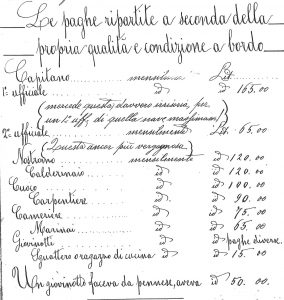 Le paghe ripartite a seconda della
propria qualità e condizione a bordo
Capitano ......... mensuali Lit.
1° ufficiale ......... d d 165.00
(mercede questa davvero irrisoria per
un 1° uff. di quelle nave massimam!)
2° ufficiale ......... mensilmente Lit. 65.00
(Questa ancor più vergognosa)
Nostromo ......... mensilmente d 120.00
Calderinaio ......... d d 120.00
Cuoco ......... d d 100.00
Carpentiere ......... d d 90.00
Cameriere ......... d d 75.00
Marinai ......... d d 65.00
Giovinotti ......... d d paghe diverse.
Sguattero o ragazzo di cucina d d 15.00
Un giovinotto faceva da pennese, aveva d 50.00